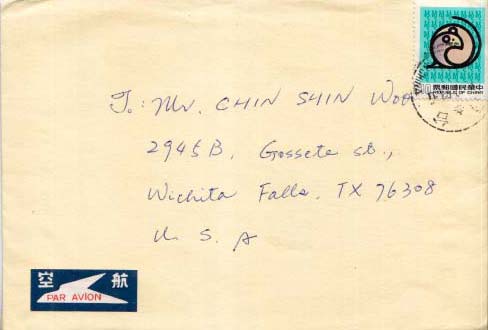 中華民國郵票
REPUBLIC OF CHINA
To: Mr. CHIN SHIN Woo
2945B, Gossete st.,
Wichita Falls, TX 76308
U. S. A
航空
PAR AVION